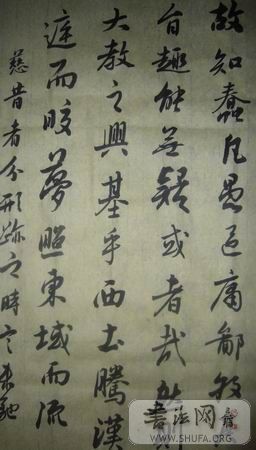 故知蠢凡愚區庸鄙投
旨趣能無疑或者哉然則
大教之興基乎西土騰漢
庭而皎夢照東域而流
慈昔者分形跡之時言未馳
書法网
WWW.SHUFA.ORG